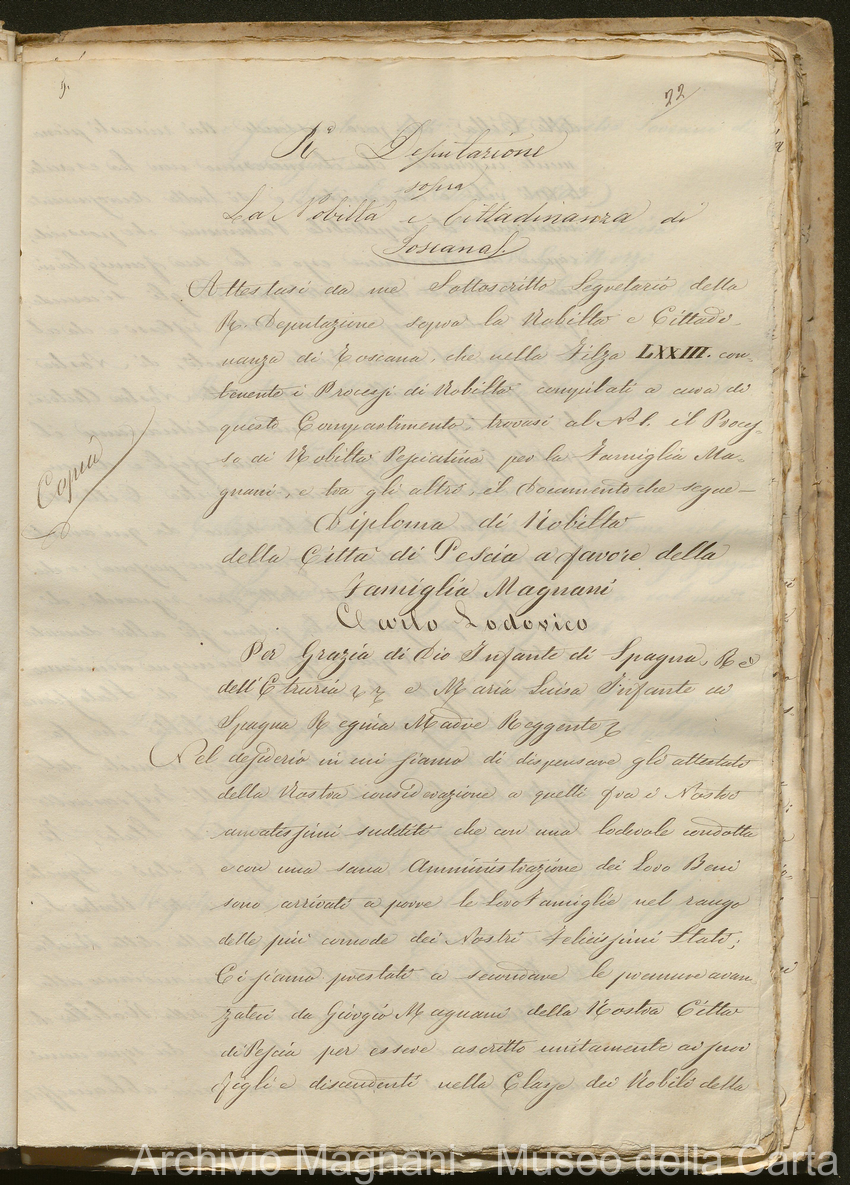 22
R.e Deputazione
sopra
La Nobiltà e Cittadinanza di
Toscana
Attestasi da me Sottoscritto Segretario della
R. Deputazione sopra la Nobiltà e Cittadi-
nanza di Toscana, che nella Filza LXXIII. con-
tenente i Processi di Nobiltà compilati a cura di
questo Compartimento, trovasi al N. 1. il Proces-
so di Nobiltà Pesciatina per la Famiglia Ma-
gnani, e tra gli altri, il Documento che segue—
Copia
Diploma di Nobiltà
della Città di Pescia a favore della
Famiglia Magnani
Carlo Lodovico
Per Grazia di Dio Infante di Spagna, Re
dell'Etruria & & e Maria Luisa Infante di
Spagna Regina Madre Reggente &
Nel desiderio in cui siamo di dispensare gli attestati
della Nostra considerazione a quelli fra i Nostri
amatissimi sudditi che con una lodevole condotta
e con una sana Amministrazione dei Loro Beni
sono arrivati a porre le Loro Famiglie nel rango
delle più comode dei Nostri Felicissimi Stati;
Ci siamo prestati a secondare le premure avan
zateci da Giorgio Magnani della Nostra Città
di Pescia per essere ascritto unitamente ai suoi
figli e discendenti nella Classe dei Nobili della
Archivio Magnani - Museo della Carta